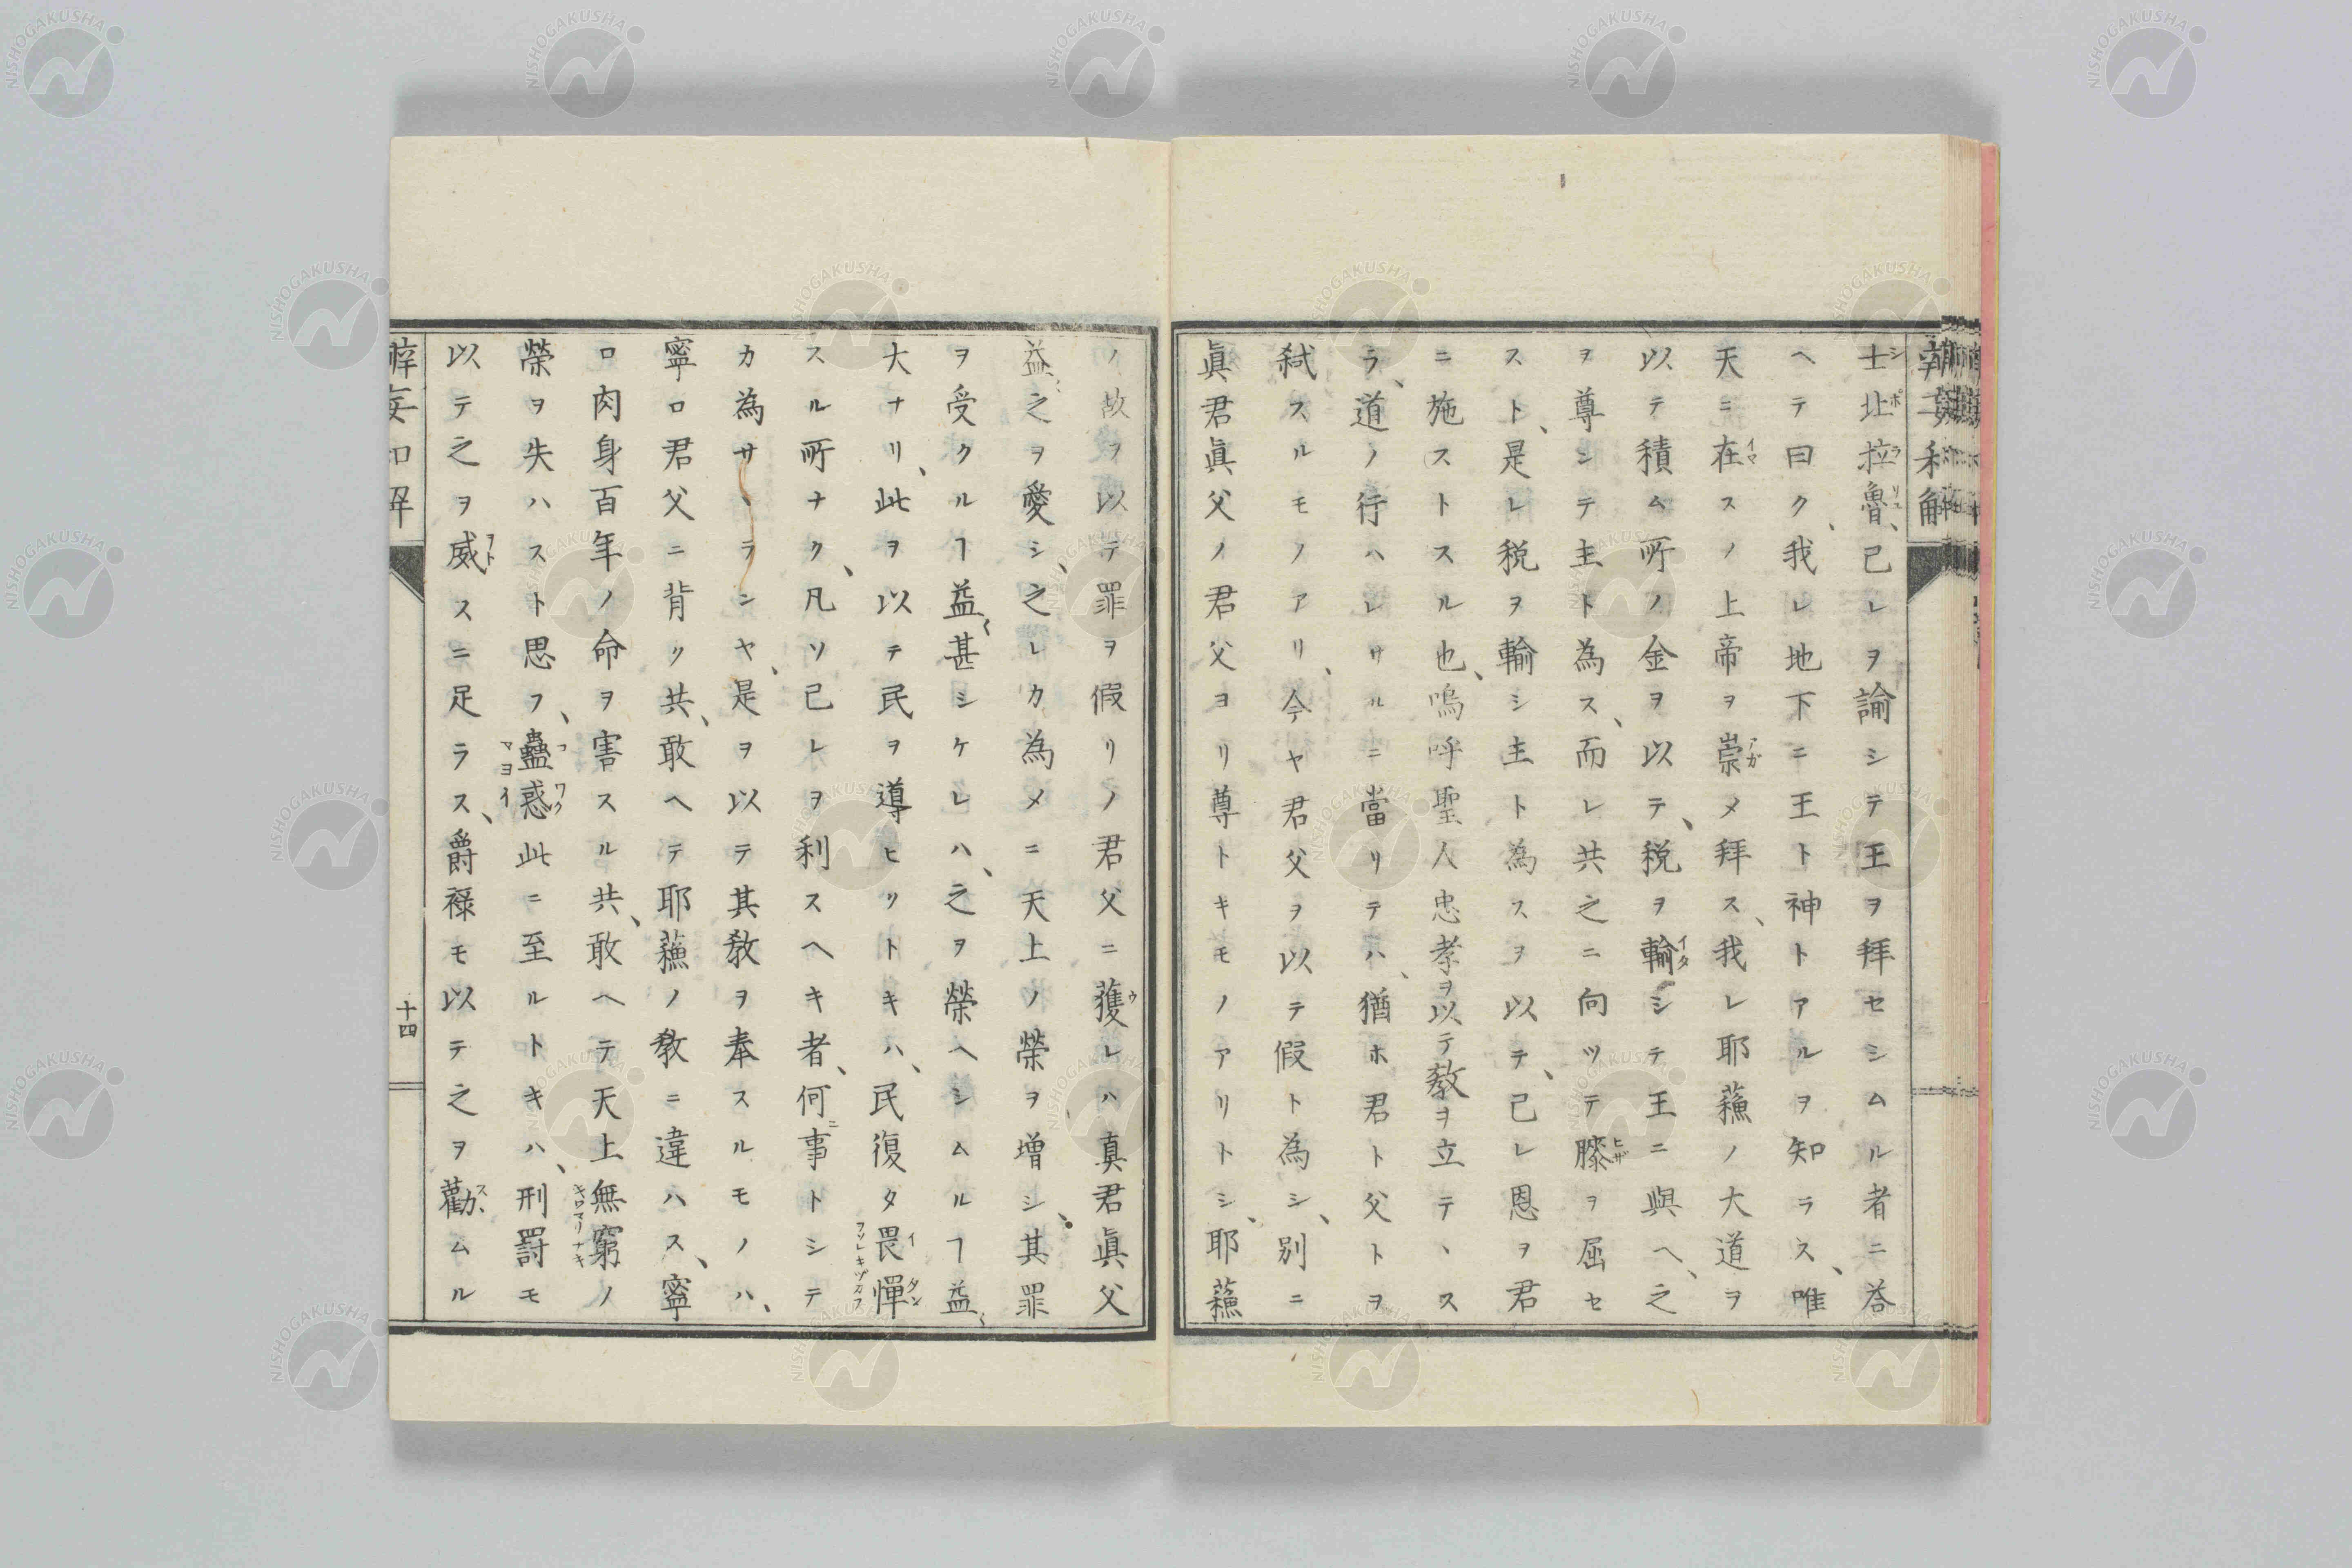 辨妄和解
士北拉魯、己レヲ諭シテ王ヲ拜セシムル者ニ答
ヘテ曰ク、我レ地下ニ王ト神トアルヲ知ラス、唯
天ニ在スノ上帝ヲ崇メ拜ス、我レ耶蘓ノ大道ヲ
以テ積ム所ノ金ヲ以テ、税ヲ輸シテ王ニ與へ、之
ヲ尊シテ主ト為ス、而レ共之ニ向ツテ膝ヲ屈セ
スト、是レ税ヲ輸シ主ト為スヲ以テ、己レ恩ヲ君
ニ施ストスル也、嗚呼聖人忠孝ヲ以テ教ヲ立テヽス
ラ、道ノ行ハレサルニ當リテハ、猶ホ君ト父トヲ
弑スルモノアリ、今ヤ君父ヲ以テ假ト為シ、別ニ
眞君眞父ノ君父ヨリ尊トキモノアリトシ、耶蘓
ノ故ヲ以テ罪ヲ假リノ君父ニ獲レハ真君眞父
益〻之ヲ愛シ、之レカ為メニ天上ノ榮ヲ増シ、其罪
ヲ受クルヿ益〻甚シケレハ、之ヲ榮ヘシムルヿ益〻
大ナリ、此ヲ以テ民ヲ導ヒクトキハ、民復タ畏憚
スル所ナク、凡ソ己レヲ利スヘキ者、何事トシテ
カ為サヽラシヤ、是ヲ以テ其教ヲ奉スルモノハ、
寧ロ君父ニ背ク共、敢ヘテ耶蘓ノ教ニ違ハス、寧
ロ肉身百年ノ命ヲ害スル共、敢ヘテ天上無窮ノ
榮ヲ失ハスト思フ、蠱惑此ニ至ルトキハ、刑罸モ
以テ之ヲ威スニ足ラス、爵祿モ以テ之ヲ勸ムル
辨妄和解
十四
NISHOGAKUSHA